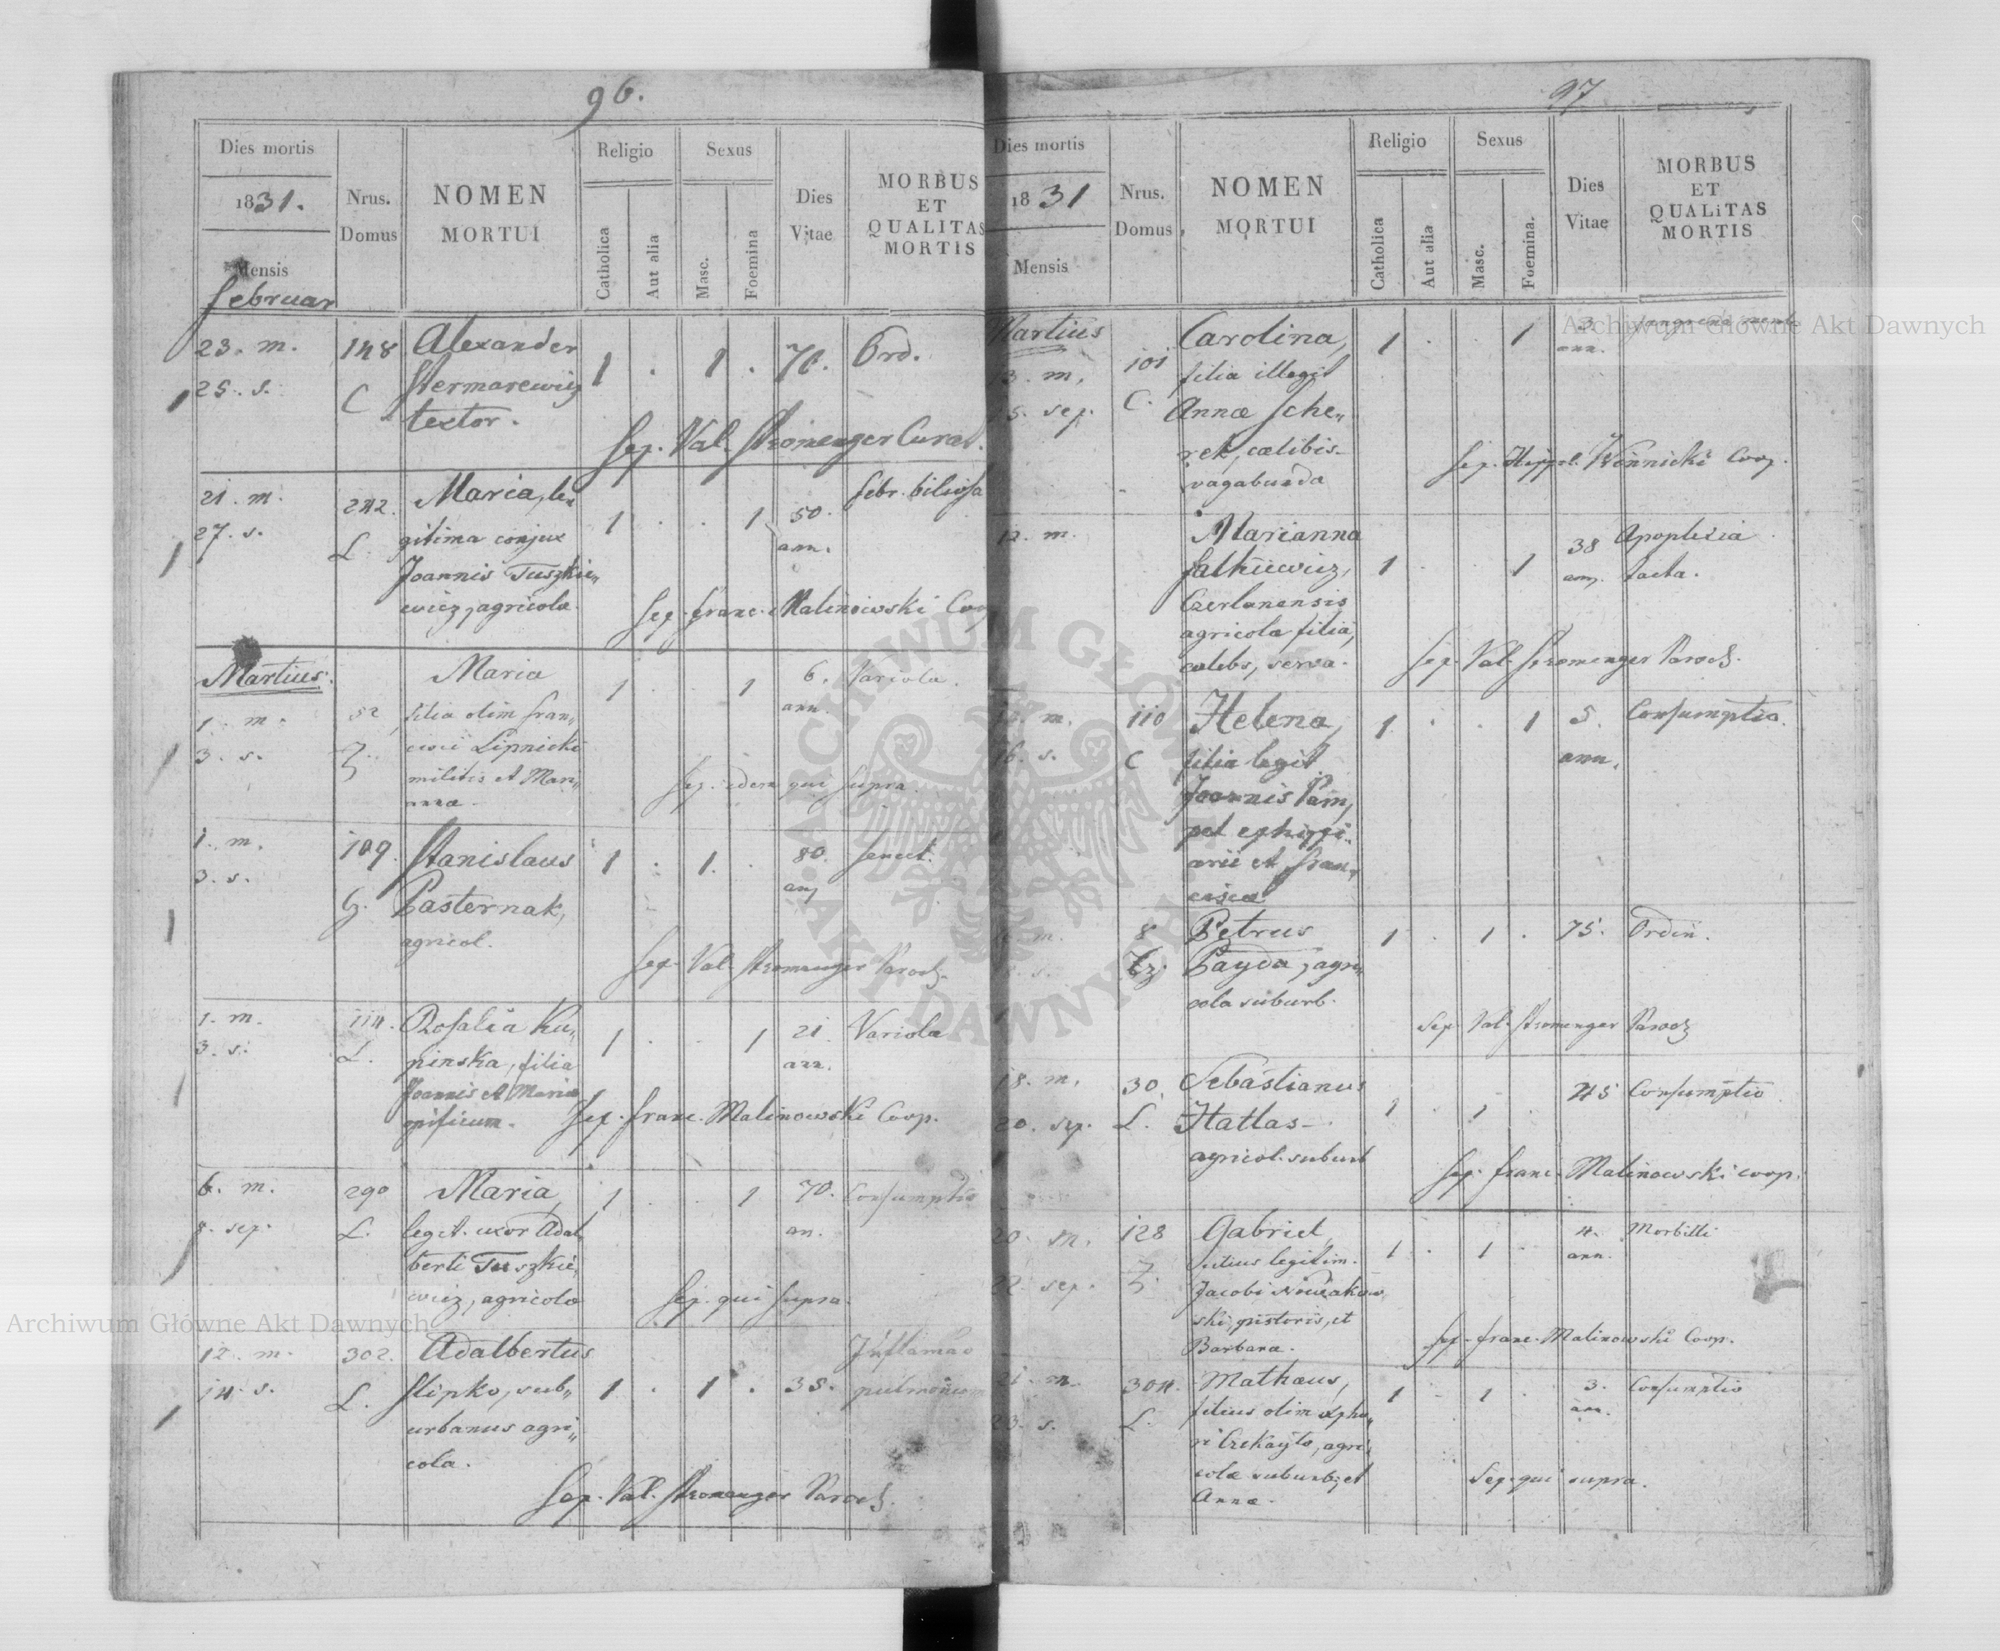 96.
Dies mortis
1831.
Mensis
februar
Nrus.
Domus
NOMEN
MORTUI
Religio
Catholica
Aut alia
Sexus
Masc.
Foemina
Dies
Vitae
MORBUS
ET
QUALITAS
MORTIS
23. m.
148
Alexander
1 . 1 .
70.
Ord.
25. s.
C
textor.
Sep. Val. Stromenger Curat.
21. m.
242.
Maria, le„
1 . . 1
50.
febr. biliosa
27. s.
L.
gitima conjux
ann.
Joannis Tuszkie„
wicz, agricola.
Sep. franc. Malinowski Coop
Martius.
Maria
1 . . 1
6.
Variola.
1. m.
82
filia olim fran„
ann.
3. s.
cisci Lipnicki
militis et Mari„
annæ.
Sep. idem qui supra.
1. m.
109.
Stanislaus
1 . 1 .
80.
senect.
3. s.
Pasternak,
agricol.
Sep. Val. Stromenger Paroch.
1. m.
114.
Rosalia Ku„
1 . . 1
21.
Variola
3. s.
L.
pinska, filia
ann.
Joannis et Maria
opificum.
Sep. franc. Malinowski Coop.
6. m.
290
Maria,
1 . . 1
70.
Consumptio
8. sep.
L.
legit. uxor Adal
an.
berti Tuszkie„
wicz, agricolæ
Sep. qui supra.
12. m.
302.
Adalbertus
1 . 1 .
35.
14. s.
L.
Slipko, sub„
pulmonum
urbanus agri„
cola.
Sep. Val. Stromenger Paroch.
97
Dies mortis
1831
Mensis
Nrus.
Domus
NOMEN
MORTUI
Religio
Catholica
Aut alia
Sexus
Masc.
Foemina.
Dies
Vitae
MORBUS
ET
QUALiTAS
MORTIS
Martius
Carolina,
1 . . 1
3
ann.
13. m.
101
filia illegit
15. sep.
C.
Annæ Sche„
rek, cælibis
vagabunda
Sep. Hippol. Winnicki Coop.
12. m.
Marianna
1 . . 1
38
Apoplexia
tacta.
Czerlanensis
agricolæ filia,
cælebs, serva.
Sep. Val. Stromenger Paroch.
m.
110
Helena,
1 . . 1
5.
Consumptio.
16. s.
C
filia legit
ann.
Joannis Pam„
pel ephippi„
arii et fran„
ciscæ
m.
8
Petrus
1 . 1 .
75.
Ordin.
s.
Payda, agri„
cola suburb.
Sep. Val. Stromenger Paroch
18. m.
30
Sebastianus
1 . 1 .
45
Consumptio
20. sep.
L.
Hatlas
agricol. suburb
Sep. franc. Malinowski coop.
20. m.
128
Gabriel,
1 . 1 .
4.
Morbilli
22. sep.
filius legitim.
ann.
Jacobi Nowakow
ski, pistoris, et
Barbara.
Sep. franc. Malinowski Coop.
21. m.
304.
Mathæus,
1 . 1 .
3.
Consumptio
23. s.
L.
filius olim
ann.
agri„
colæ suburb. et
Annæ.
Sep. qui supra.
Archiwum Główne Akt Dawnych
Archiwum Główne Akt Dawnych
ARCHIWUM GŁÓWNE AKT DAWNYCH